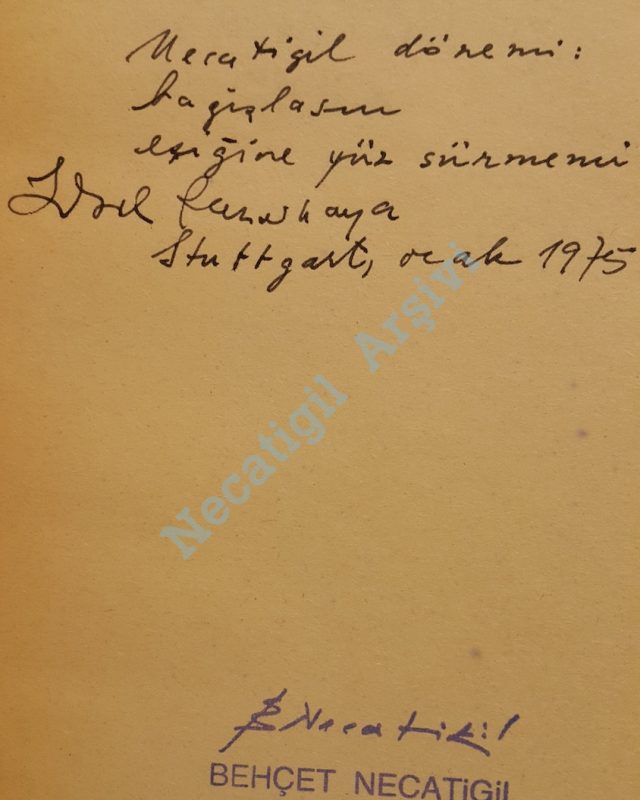 Necatigil dönemi:
bağışlasın
eşiğine yüz sürmemi
Stuttgart, ocak 1975
Necatigil Arşivi
B Necatigil
BEHÇET NECATİGİL